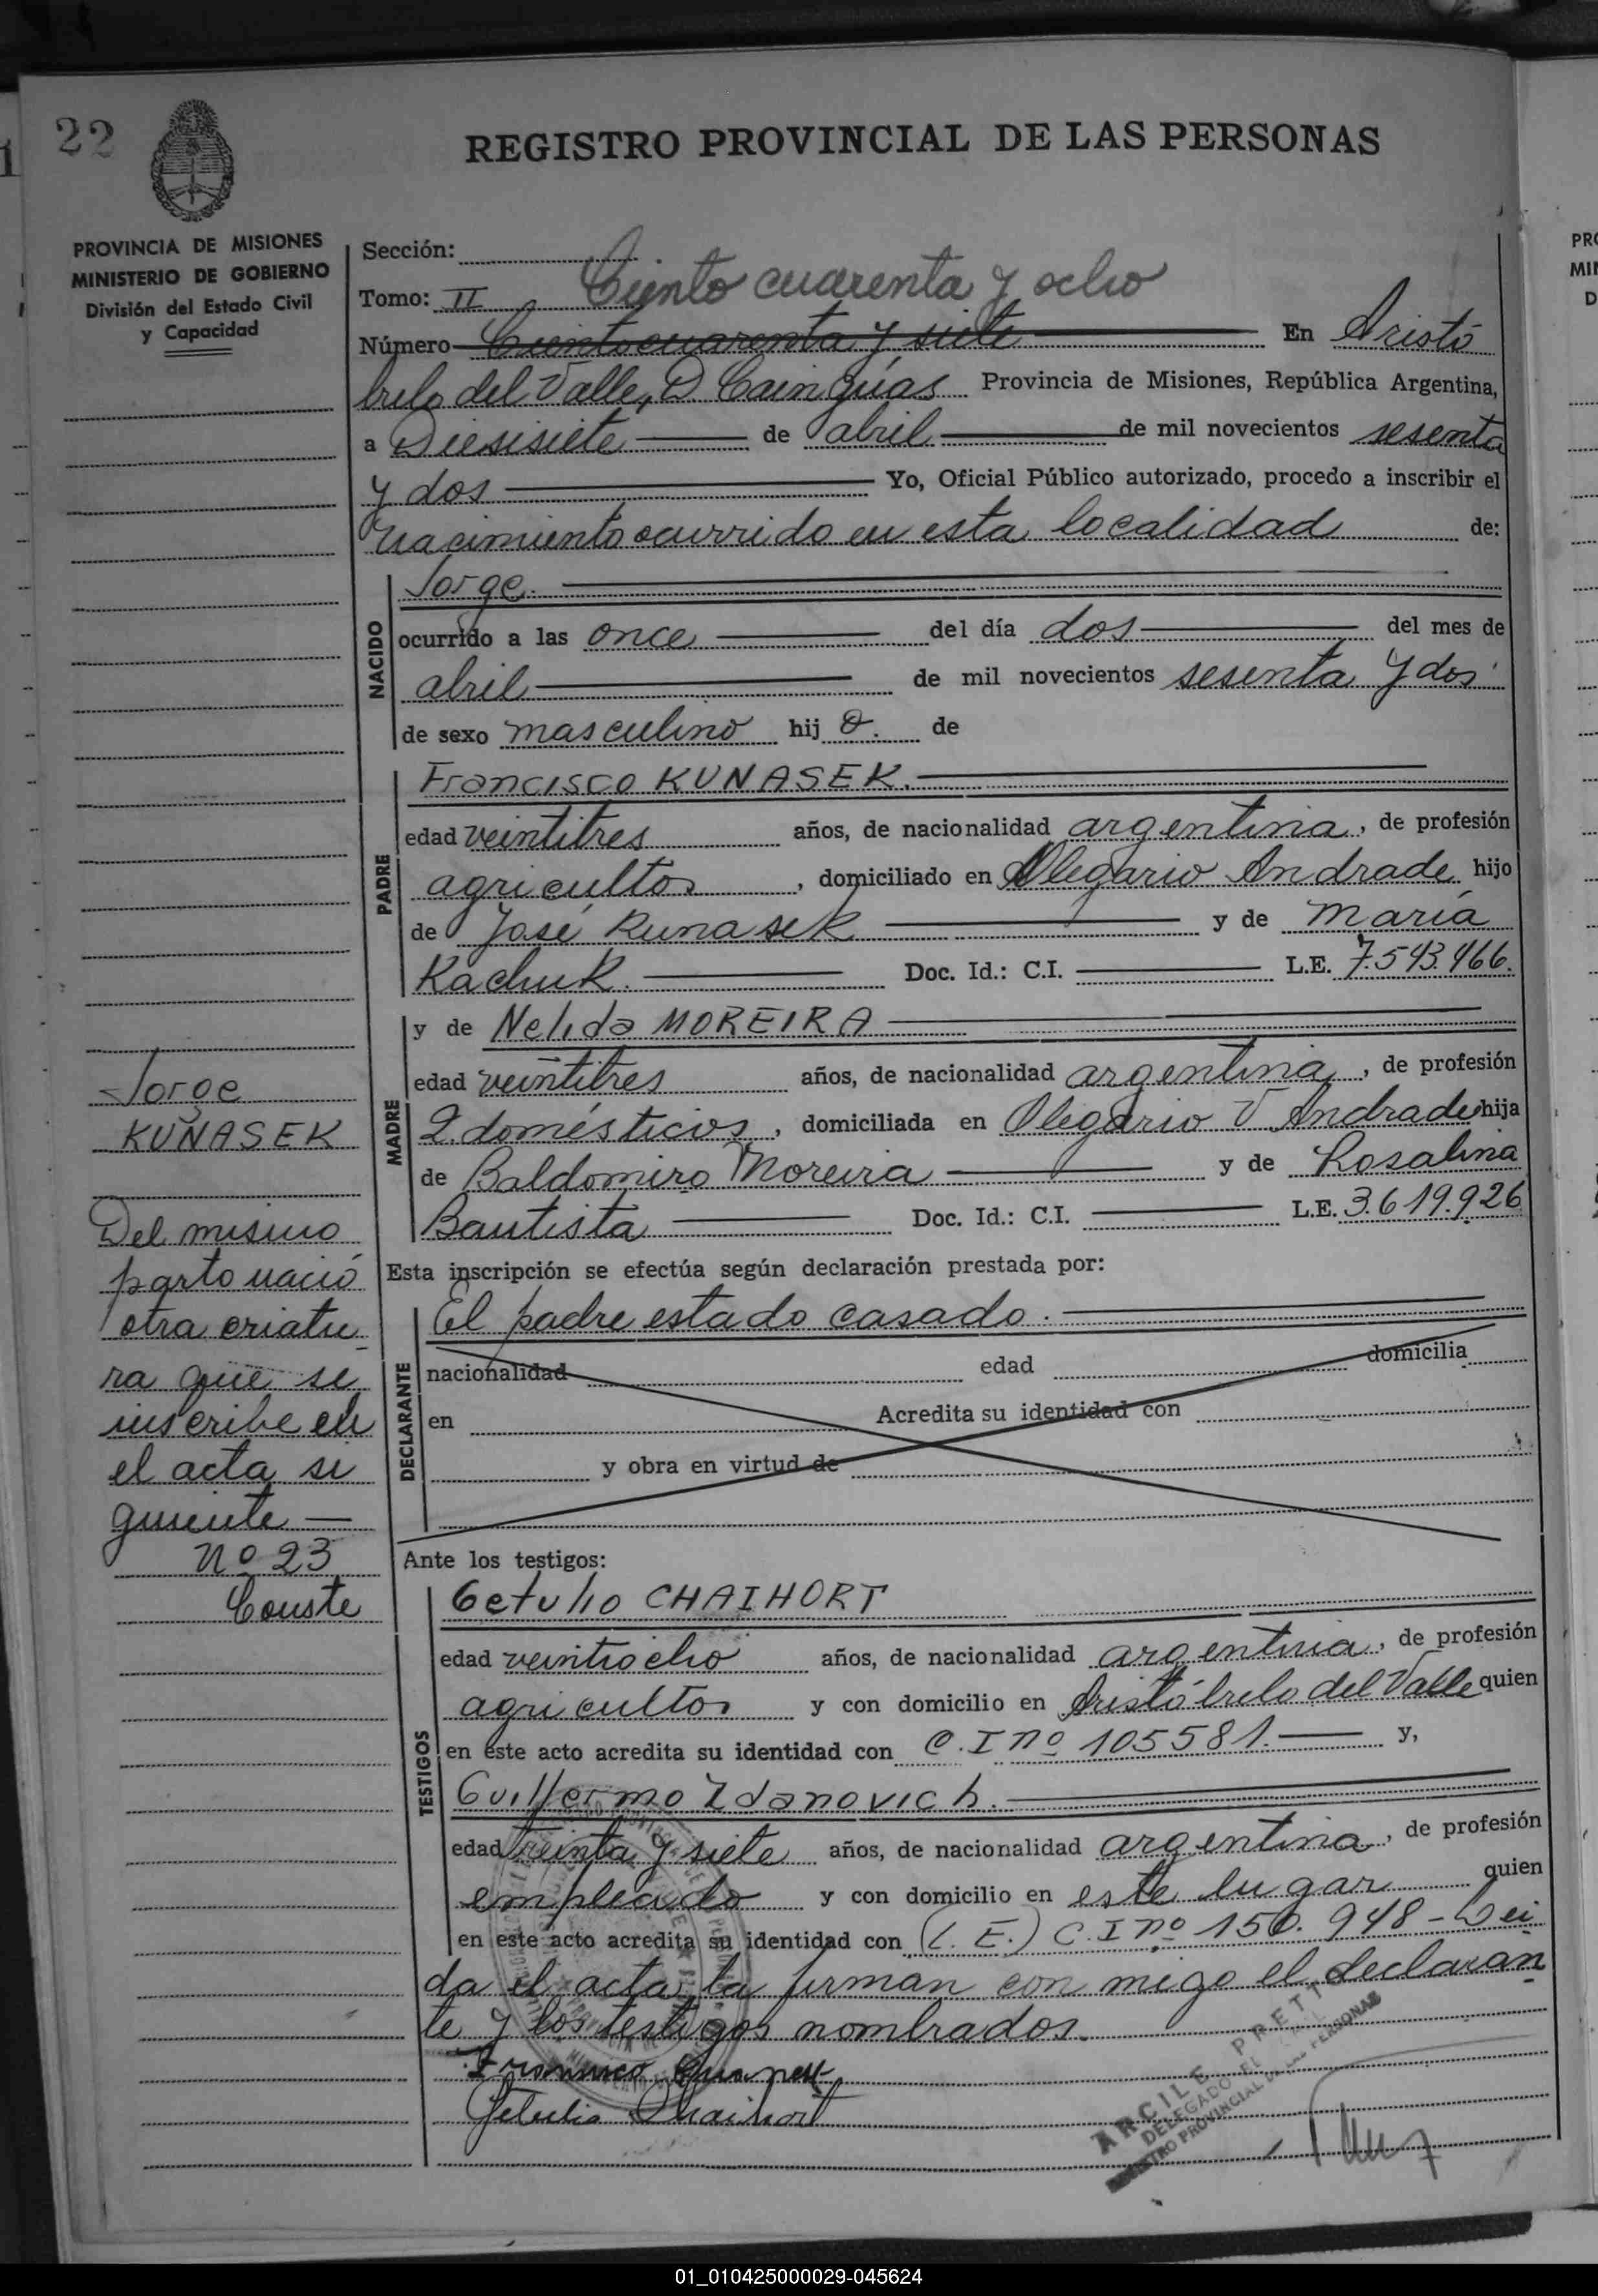 22
REGISTRO PROVINCIAL DE LAS PERSONAS
PROVINCIA DE MISIONES
MINISTERIO DE GOBIERNO
División del Estado Civil
y Capacidad
Sección:
Tomo: II
Ciento cuarenta y ocho
Número Ciento cuarenta y siete En Aristó
bulo del Valle, D. Cainguas Provincia de Misiones, República Argentina,
a Diesisiete de abril de mil novecientos sesenta
y dos Yo, Oficial Público autorizado, procedo a inscribir el
nacimiento ocurrido en esta localidad de:
NACIDO
Jorge.
ocurrido a las once del día dos del mes de
abril de mil novecientos sesenta y dos
de sexo masculino hij o. de
PADRE
Francisco KUNASEK.
edad veintitres años, de nacionalidad argentina, de profesión
agricultor, domiciliado en Olegario Andrade hijo
de José Kunasek y de María
Kachuk. Doc. Id.: C.I. L.E. 7.543.466.
MADRE
y de Nelida MOREIRA
edad veintitres años, de nacionalidad argentina, de profesión
Q. domésticos, domiciliada en Olegario V Andrade hija
de Baldomiro Moreira y de Rosalina
Bautista Doc. Id.: C.I. L.E. 3.619.926
Jorge
KUNASEK
Del mismo
parto nació
otra criatu
ra que se
inscribe en
el acta si
guiente —
Nº 23
Conste
Esta inscripción se efectúa según declaración prestada por:
DECLARANTE
El padre estado casado.
nacionalidad edad domicilia
en Acredita su identidad con
y obra en virtud de
Ante los testigos:
TESTIGOS
Getulio CHAIHORT
edad veintiocho años, de nacionalidad argentina, de profesión
agricultor y con domicilio en Aristóbulo del Valle quien
en este acto acredita su identidad con C.I nº 105581. y,
Guillermo Zdanovich.
edad treinta y siete años, de nacionalidad argentina, de profesión
empleado y con domicilio en este lugar quien
en este acto acredita su identidad con (L.E.) C.I nº 150.948 - Lei
da el acta la firman con migo el declaran
te y los testigos nombrados.
Getulio Chaihort
ARCILE PRETTI
DELEGADO DEL
REGISTRO PROVINCIAL DE LAS PERSONAS
01_010425000029-045624